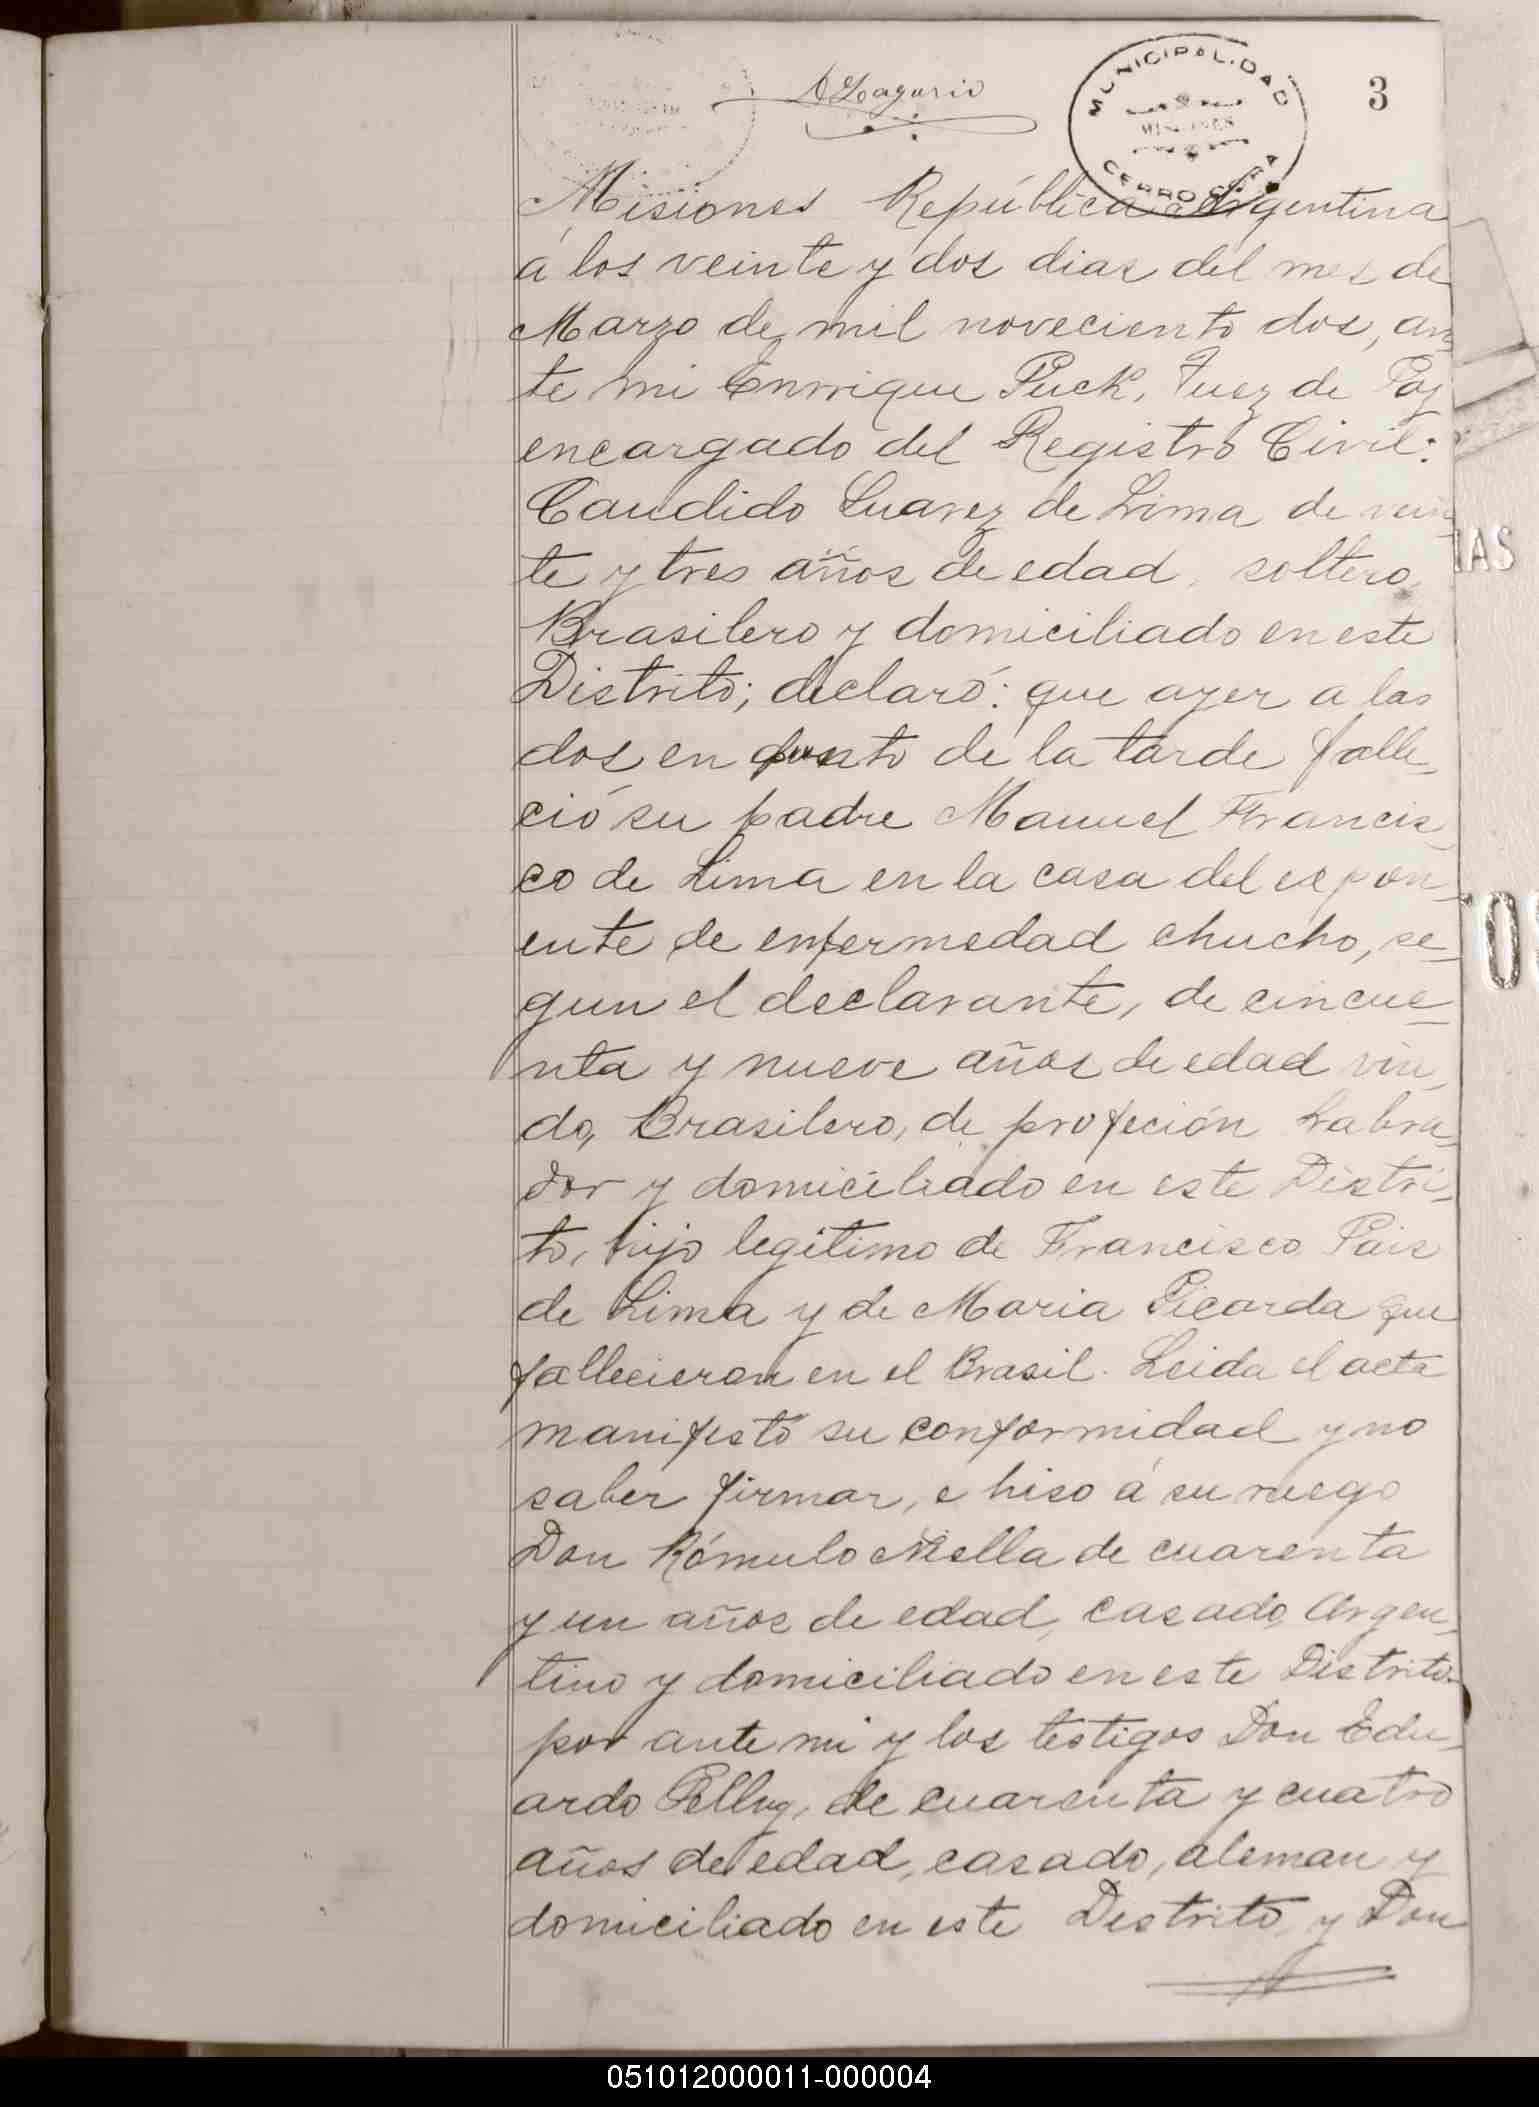 MUNICIPALIDAD
MISIONES
CERRO CORA
3
Misiones República Argentina
á los veinte y dos dias del mes de
Marzo de mil noveciento dos, an
te mi Enrrique Puck, Juez de Paz
encargado del Registro Civil:
Candido Suarez de Lima de vein
te y tres años de edad, soltero,
Brasilero y domiciliado en este
Distrito; declaró: que ayer a las
dos en punto de la tarde falle,
ció su padre Manuel Francis,
co de Lima en la casa del expon,
ente de enfermedad chucho, se,
gun el declarante, de cincue
nta y nueve años de edad viu,
do, Brasilero, de profeción Labra,
dor y domiciliado en este Distri,
to, hijo legitimo de Francisco Pais
de Lima y de Maria Picarda que
fallecieron en el Brasil. Leida el acta
manifestó su conformidad y no
saber firmar, e hiso á su ruego
Don Rómulo Niella de cuarenta
y un años de edad, casado, Argen,
tino y domiciliado en este Distrito
por ante mi y los testigos Don Edu,
ardo de cuarenta y cuatro
años de edad, casado, aleman y
domiciliado en este Destrito, y Don
IAS
TO
051012000011-000004